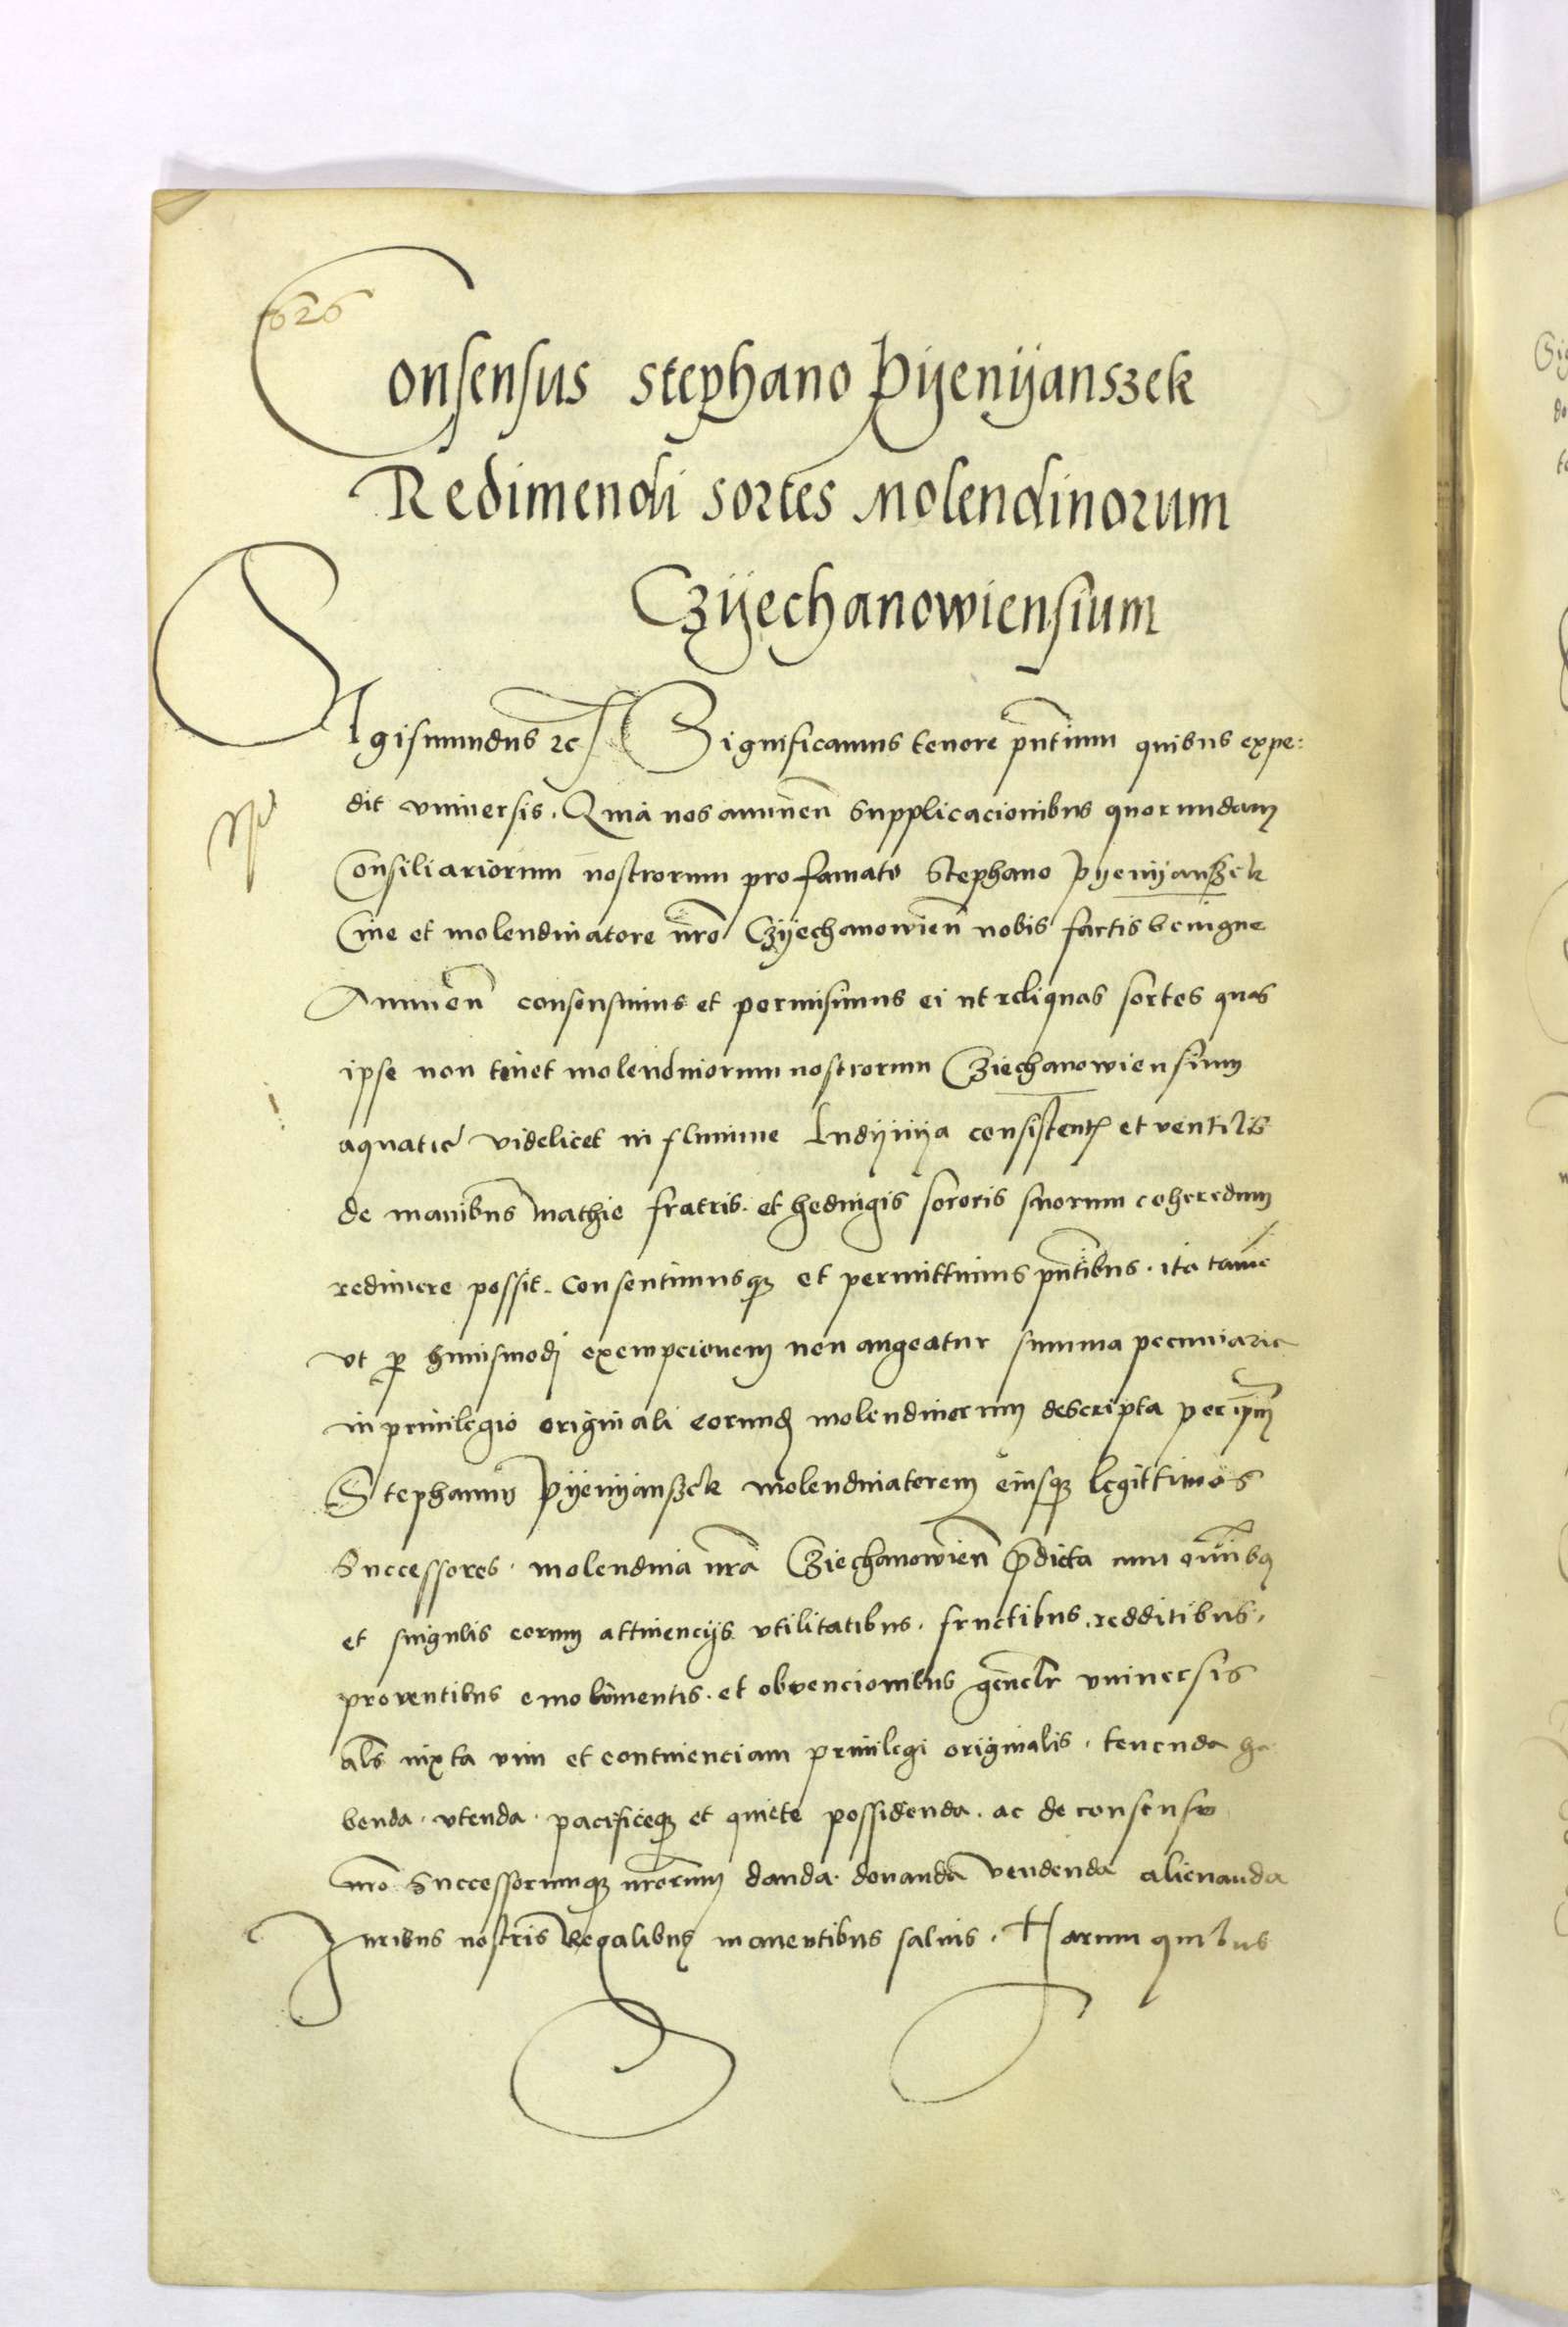 626
Consensus Stephano Pyenyanszek
Redimendi sortes Molendinorum
Czyechanowiensium
Sigismundus etc Significamus tenore pntium quibus expe:
dit vniuersis. Quia nos annuen supplicacionibus quorundam
Consiliariorum nostrorum pro famato Stephano Pyenyanszek
Ciue et molendinatore nro Czyechanowien nobis factis benigne
Annuen consensimus et permisimus ei ut reliquas sortes quas
ipse non tenet molendinorum nostrorum Cziechanowiensium
aquatici videlicet in flumine Lndynya consistent et ventilis
de manibus Mathie fratris et hedwigis sororis suorum coheredum
redimere possit. Consentimusq et permittimus pntibus. ita tame
vt p huiusmodi exempcionem non augeatur summa pecuniaria
in priuilegio originali eorund molendinorum descripta per ipm
Stephanum Pyenyanszek molendinatorem eiusq legittimos
Successores. molendina nra Cziechanowien pdicta cum omnibus
et singulis eorum attinencijs vtilitatibus. fructibus, redditibus,
prouentibus emolumentis. et obuencionibus genelr vniuersis
als iuxta vim et continenciam priuilegi originalis. tenenda ha
benda. vtenda. pacificeq et quiete possidenda. ac de consensu
nro Successorumq nrorum danda. donanda vendenda alienanda
Iuribus nostris Regalibus manentibus saluis. Harum quibus